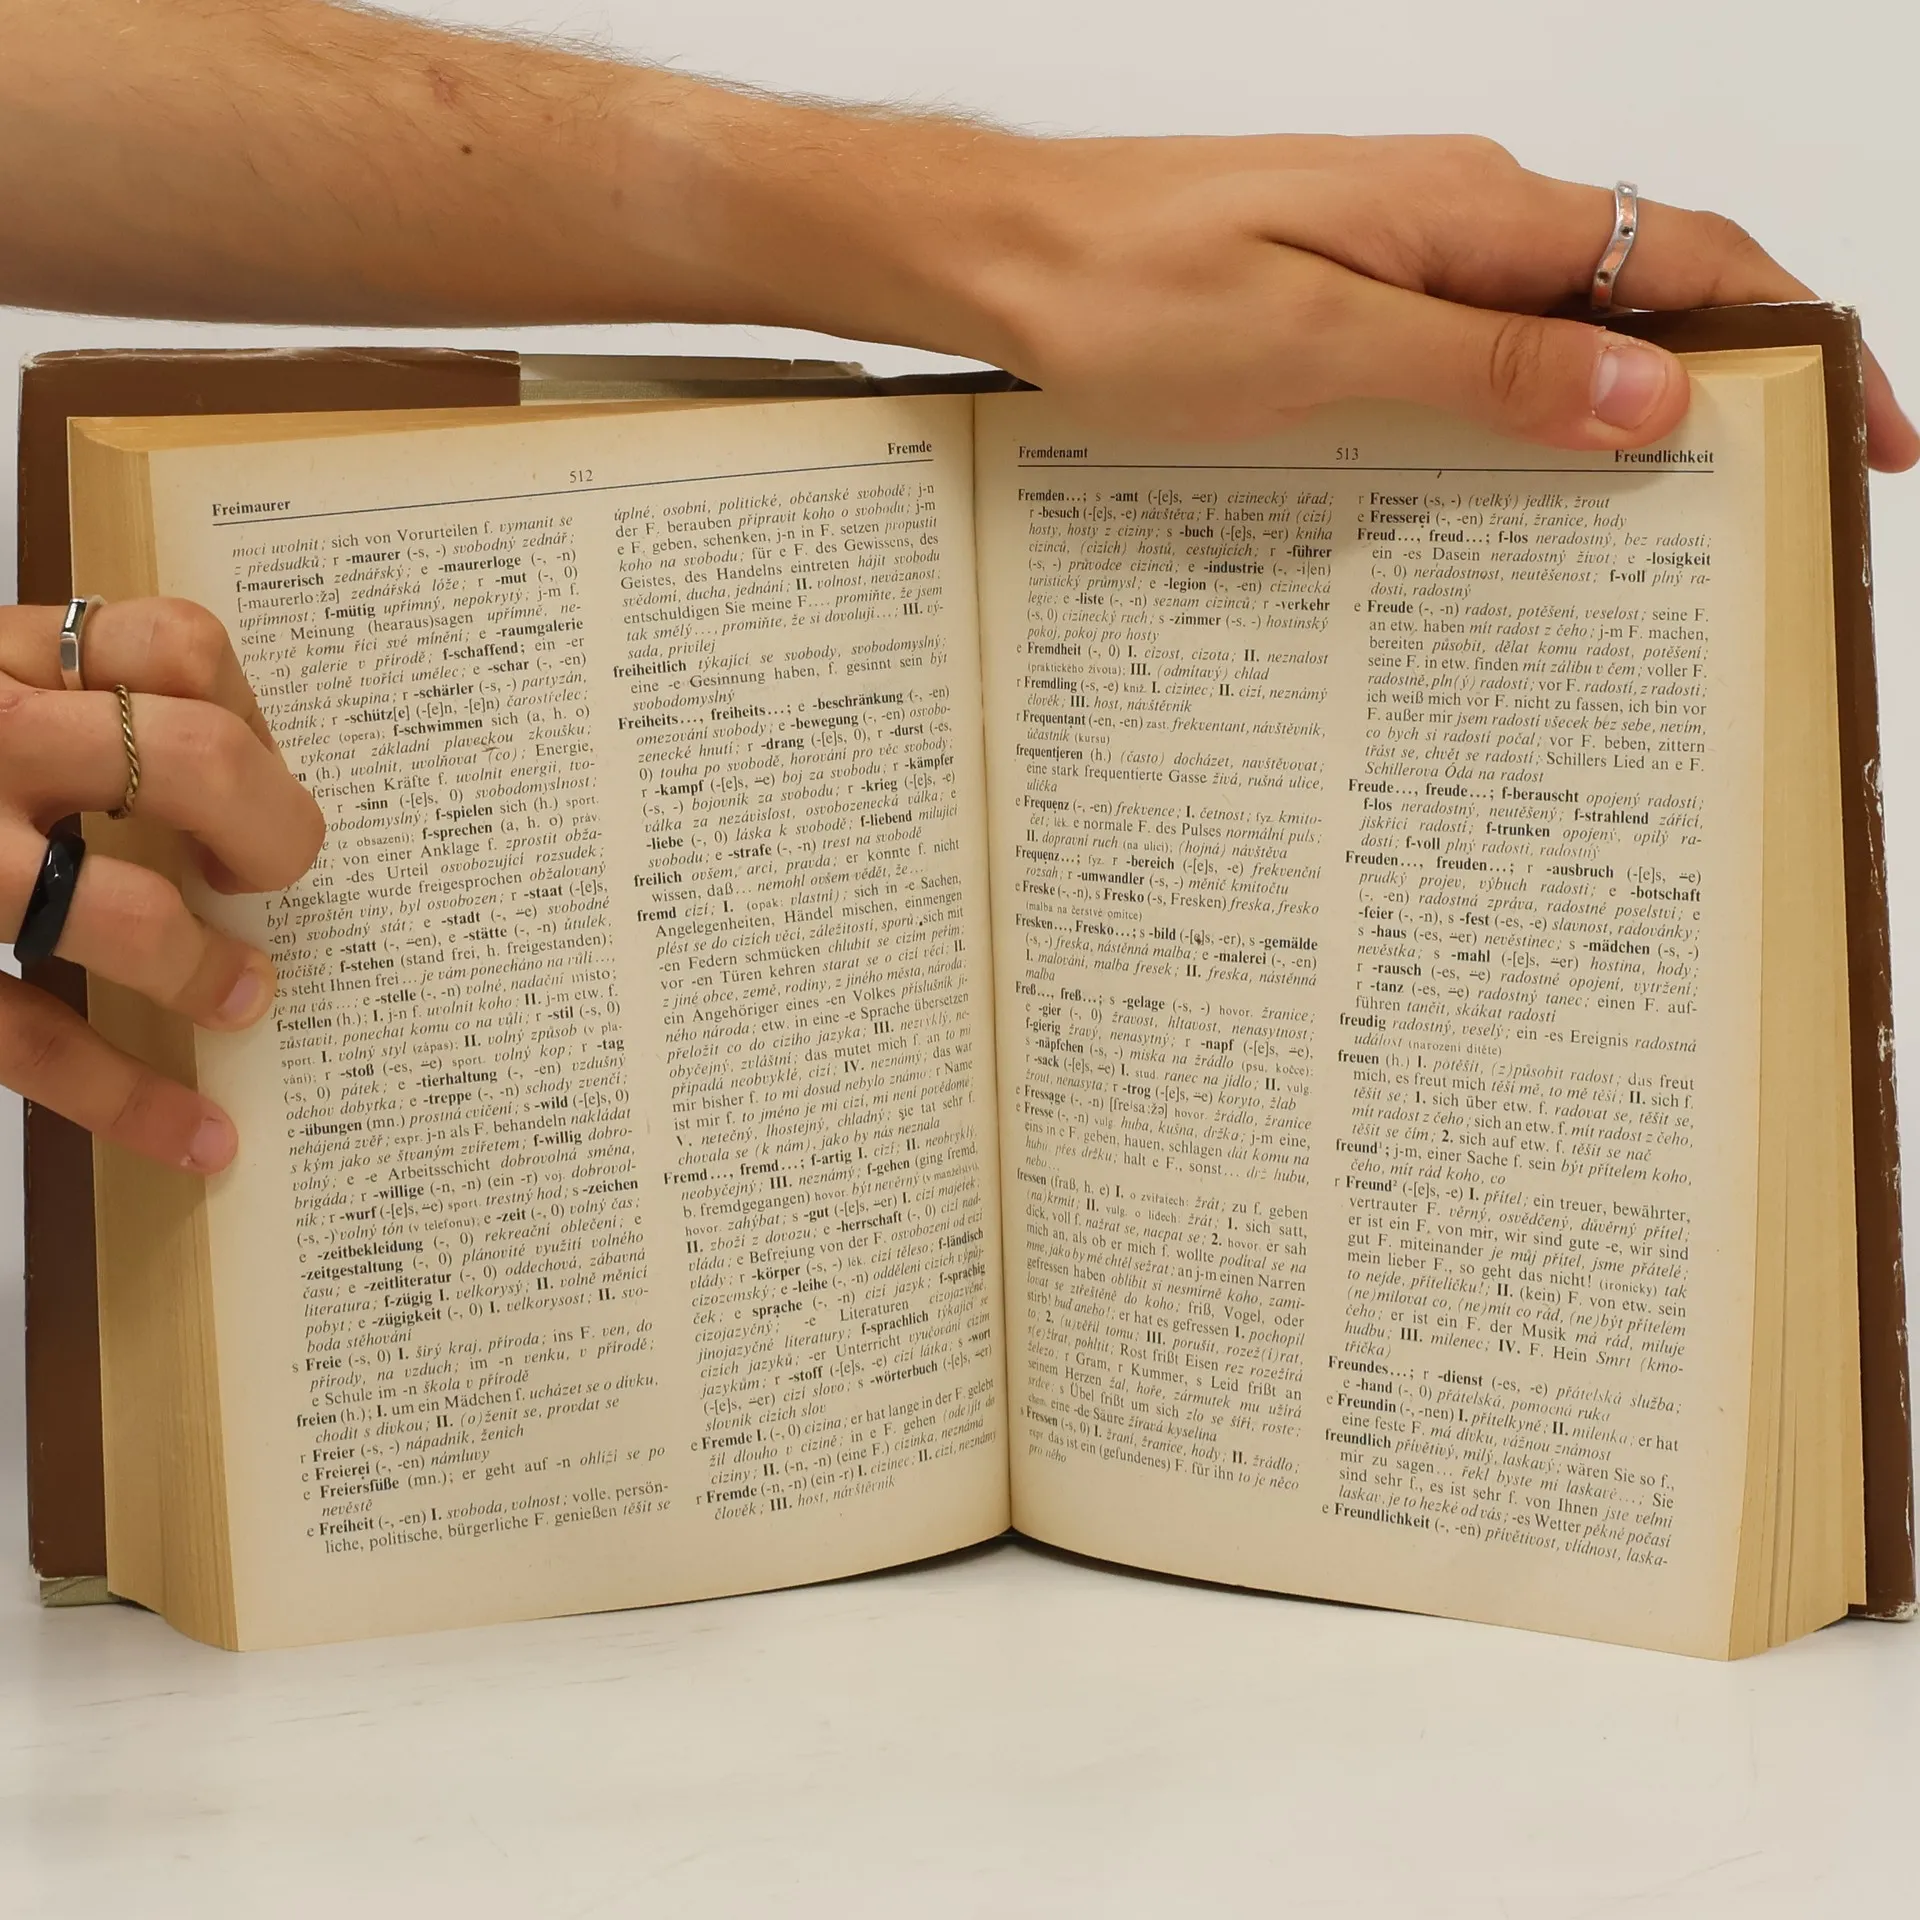 Freimaurer
512
Fremde
moci uvolnit; sich von Vorurteilen f. vymanit se
z předsudků; r -maurer (-s, -) svobodný zednář;
f-maurerisch zednářský; e -maurerloge (-, -n)
[-maurerlo:žə] zednářská lóže; r -mut (-, 0)
upřímnost; f-mütig upřímný, nepokrytý; j-m f.
seine Meinung (heraus)sagen upřímně, ne-
pokrytě komu říci své mínění; e -raumgalerie
(-, -n) galerie v přírodě; f-schaffend; ein -er
Künstler volně tvořící umělec; e -schar (-, -en)
partyzánská skupina; r -schärler (-s, -) partyzán,
škodník; r -schütz[e] (-[e]n, -[e]n) čarostřelec;
(opera); f-schwimmen sich (a, h. o)
vykonat základní plaveckou zkoušku;
(h.) uvolnit, uvolňovat (co); Energie,
Kräfte f. uvolnit energii, tvo-
r -sinn (-[e]s, 0) svobodomyslnost;
svobodomyslný; f-spielen sich (h.) sport.
(z obsazení); f-sprechen (a, h. o) práv.
von einer Anklage f. zprostit obža-
ein -des Urteil osvobozující rozsudek;
r Angeklagte wurde freigesprochen obžalovaný
byl zproštěn viny, byl osvobozen; r -staat (-[e]s,
-en) svobodný stát; e -stadt (-, ⸚e) svobodné
město; e -statt (-, ⸚en), e -stätte (-, -n) útulek,
útočiště; f-stehen (stand frei, h. freigestanden);
es steht Ihnen frei... je vám ponecháno na vůli...,
je na vás...; e -stelle (-, -n) volné, nadační místo;
f-stellen (h.); I. j-n f. uvolnit koho; II. j-m etw. f.
zůstavit, ponechat komu co na vůli; r -stil (-s, 0)
sport. I. volný styl (zápas); II. volný způsob (v pla-
vání); r -stoß (-es, ⸚e) sport. volný kop; r -tag
(-s, 0) pátek; e -tierhaltung (-, -en) vzdušný
odchov dobytka; e -treppe (-, -n) schody zvenčí;
e -übungen (mn.) prostná cvičení; s -wild (-[e]s, 0)
nehájená zvěř; expr. j-n als F. behandeln nakládat
s kým jako se štvaným zvířetem; f-willig dobro-
volný; e -e Arbeitsschicht dobrovolná směna,
brigáda; r -willige (-n, -n) (ein -r) voj. dobrovol-
ník; r -wurf (-[e]s, ⸚e) sport. trestný hod; s -zeichen
(-s, -) volný tón (v telefonu); e -zeit (-, 0) volný čas;
e -zeitbekleidung (-, 0) rekreační oblečení; e
-zeitgestaltung (-, 0) plánovité využití volného
času; e -zeitliteratur (-, 0) oddechová, zábavná
literatura; f-zügig I. velkorysý; II. volně měnící
pobyt; e -zügigkeit (-, 0) I. velkorysost; II. svo-
boda stěhování
s Freie (-s, 0) I. širý kraj, příroda; ins F. ven, do
přírody, na vzduch; im -n venku, v přírodě;
e Schule im -n škola v přírodě
freien (h.); I. um ein Mädchen f. ucházet se o dívku,
chodit s dívkou; II. (o)ženit se, provdat se
r Freier (-s, -) nápadník, ženich
e Freierei (-, -en) námluvy
e Freiersfüße (mn.); er geht auf -n ohlíží se po
nevěstě
e Freiheit (-, -en) I. svoboda, volnost; volle, persön-
liche, politische, bürgerliche F. genießen těšit se
úplné, osobní, politické, občanské svobodě; j-n
der F. berauben připravit koho o svobodu; j-m
e F. geben, schenken, j-n in F. setzen propustit
koho na svobodu; für e F. des Gewissens, des
Geistes, des Handelns eintreten hájit svobodu
svědomí, ducha, jednání; II. volnost, nevázanost;
entschuldigen Sie meine F.... promiňte, že jsem
tak smělý..., promiňte, že si dovoluji...; III. vý-
sada, privilej
freiheitlich týkající se svobody, svobodomyslný;
eine -e Gesinnung haben, f. gesinnt sein být
svobodomyslný
Freiheits..., freiheits...; e -beschränkung (-, -en)
omezování svobody; e -bewegung (-, -en) osvobo-
zenecké hnutí; r -drang (-[e]s, 0), r -durst (-es,
0) touha po svobodě, horování pro věc svobody;
r -kampf (-[e]s, ⸚e) boj za svobodu; r -kämpfer
(-s, -) bojovník za svobodu; r -krieg (-[e]s, -e)
válka za nezávislost, osvobozenecká válka; e
-liebe (-, 0) láska k svobodě; f-liebend milující
svobodu; e -strafe (-, -n) trest na svobodě
freilich ovšem, arci, pravda; er konnte f. nicht
wissen, daß... nemohl ovšem vědět, že...
fremd cizí; I. (opak: vlastní); sich in -e Sachen,
Angelegenheiten, Händel mischen, einmengen
plést se do cizích věcí, záležitostí, sporů; sich mit
-en Federn schmücken chlubit se cizím peřím;
vor -en Türen kehren starat se o cizí věci; II.
z jiné obce, země, rodiny, z jiného města, národa;
ein Angehöriger eines -en Volkes příslušník ji-
ného národa; etw. in eine -e Sprache übersetzen
přeložit co do cizího jazyka; III. nezvyklý, ne-
obyčejný, zvláštní; das mutet mich f. an to mi
připadá neobvyklé, cizí; IV. neznámý; das war
mir bisher f. to mi dosud nebylo známo; r Name
ist mir f. to jméno je mi cizí, mi není povědomé;
V. netečný, lhostejný, chladný; sie tat sehr f.
chovala se (k nám), jako by nás neznala
Fremd..., fremd...; f-artig I. cizí; II. neobvyklý,
neobyčejný; III. neznámý; f-gehen (ging fremd,
b. fremdgegangen) hovor. být nevěrný (v manželství),
hovor. zahýbat; s -gut (-[e]s, ⸚er) I. cizí majetek;
II. zboží z dovozu; e -herrschaft (-, 0) cizí nad-
vláda; e Befreiung von der F. osvobození od cizí
vlády; r -körper (-s, -) lék. cizí těleso; f-ländisch
cizozemský; e -leihe (-, -n) oddělení cizích výpůj-
ček; e sprache (-, -n) cizí jazyk; f-sprachig
cizojazyčný; -e Literaturen cizojazyčné,
jinojazyčné literatury; f-sprachlich týkající se
cizích jazyků; -er Unterricht vyučování cizím
jazykům; r -stoff (-[e]s, -e) cizí látka; s -wort
(-[e]s, ⸚er) cizí slovo; s -wörterbuch (-[e]s, ⸚er)
slovník cizích slov
e Fremde I. (-, 0) cizina; er hat lange in der F. gelebt
žil dlouho v cizině; in e F. gehen (ode)jít do
ciziny; II. (-n, -n) (eine F.) cizinka, neznámá
r Fremde (-n, -n) (ein -r) I. cizinec; II. cizí, neznámý
člověk; III. host, návštěvník
Fremdenamt
513
Freundlichkeit
Fremden...; s -amt (-[e]s, ⸚er) cizinecký úřad;
r -besuch (-[e]s, -e) návštěva; F. haben mít (cizí)
hosty, hosty z ciziny; s -buch (-[e]s, ⸚er) kniha
cizinců, (cizích) hostů, cestujících; r -führer
(-s, -) průvodce cizinců; e -industrie (-, -i|en)
turistický průmysl; e -legion (-, -en) cizinecká
legie; e -liste (-, -n) seznam cizinců; r -verkehr
(-s, 0) cizinecký ruch; s -zimmer (-s, -) hostinský
pokoj, pokoj pro hosty
e Fremdheit (-, 0) I. cizost, cizota; II. neznalost
(praktického života); III. (odmítavý) chlad
r Fremdling (-s, -e) kniž. I. cizinec; II. cizí, neznámý
člověk; III. host, návštěvník
r Frequentant (-en, -en) zast. frekventant, návštěvník,
účastník (kursu)
frequentieren (h.) (často) docházet, navštěvovat;
eine stark frequentierte Gasse živá, rušná ulice,
ulička
e Frequenz (-, -en) frekvence; I. četnost; fyz. kmito-
čet; lék. e normale F. des Pulses normální puls;
II. dopravní ruch (na ulici); (hojná) návštěva
Frequenz...; fyz. r -bereich (-[e]s, -e) frekvenční
rozsah; r -umwandler (-s, -) měnič kmitočtu
e Freske (-, -n), s Fresko (-s, Fresken) freska, fresko
(malba na čerstvé omítce)
Fresken..., Fresko...; s -bild (-[e]s, -er), s -gemälde
(-s, -) freska, nástěnná malba; e -malerei (-, -en)
I. malování, malba fresek; II. freska, nástěnná
malba
Freß..., freß...; s -gelage (-s, -) hovor. žranice;
e -gier (-, 0) žravost, hltavost, nenasytnost;
f-gierig žravý, nenasytný; r -napf (-[e]s, ⸚e),
s -näpfchen (-s, -) miska na žrádlo (psu, kočce);
r -sack (-[e]s, ⸚e) I. stud. ranec na jídlo; II. vulg.
žrout, nenasyta; r -trog (-[e]s, ⸚e) koryto, žlab
e Fressage (-, -n) [fresa:žə] hovor. žrádlo, žranice
e Fresse (-, -n) vulg. huba, kušna, držka; j-m eine,
eins in e F. geben, hauen, schlagen dát komu na
hubu, přes držku; halt e F., sonst... drž hubu,
nebo...
fressen (fraß, h. e) I. o zvířatech: žrát; zu f. geben
(na)krmit; II. vulg. o lidech: žrát; 1. sich satt,
dick, voll f. nažrat se, nacpat se; 2. hovor. er sah
mich an, als ob er mich f. wollte podíval se na
mne, jako by mě chtěl sežrat; an j-m einen Narren
gefressen haben oblíbit si nesmírně koho, zami-
lovat se ztřeštěně do koho; friß, Vogel, oder
stirb! buď anebo!; er hat es gefressen 1. pochopil
to; 2. (u)věřil tomu; III. porušit, rozež(í)rat,
s(e)žírat, pohltit; Rost frißt Eisen rez rozežírá
železo; r Gram, r Kummer, s Leid frißt an
seinem Herzen žal, hoře, zármutek mu užírá
srdce; s Übel frißt um sich zlo se šíří, roste;
chem. eine -de Säure žíravá kyselina
s Fressen (-s, 0) I. žraní, žranice, hody; II. žrádlo;
expr. das ist ein (gefundenes) F. für ihn to je něco
pro něho
r Fresser (-s, -) (velký) jedlík, žrout
e Fresserei (-, -en) žraní, žranice, hody
Freud..., freud...; f-los neradostný, bez radosti;
ein -es Dasein neradostný život; e -losigkeit
(-, 0) neradostnost, neutěšenost; f-voll plný ra-
dosti, radostný
e Freude (-, -n) radost, potěšení, veselost; seine F.
an etw. haben mít radost z čeho; j-m F. machen,
bereiten působit, dělat komu radost, potěšení;
seine F. in etw. finden mít zálibu v čem; voller F.
radostně, pln(ý) radosti; vor F. radostí, z radosti;
ich weiß mich vor F. nicht zu fassen, ich bin vor
F. außer mir jsem radostí všecek bez sebe, nevím,
co bych si radostí počal; vor F. beben, zittern
třást se, chvět se radostí; Schillers Lied an e F.
Schillerova Óda na radost
Freude..., freude...; f-berauscht opojený radostí;
f-los neradostný, neutěšený; f-strahlend zářící,
jiskřící radostí; f-trunken opojený, opilý ra-
dostí; f-voll plný radosti, radostný
Freuden..., freuden...; r -ausbruch (-[e]s, ⸚e)
prudký projev, výbuch radosti; e -botschaft
(-, -en) radostná zpráva, radostné poselství; e
-feier (-, -n), s -fest (-es, -e) slavnost, radovánky;
s -haus (-es, ⸚er) nevěstinec; s -mädchen (-s, -)
nevěstka; s -mahl (-[e]s, ⸚er) hostina, hody;
r -rausch (-es, ⸚e) radostné opojení, vytržení;
r -tanz (-es, ⸚e) radostný tanec; einen F. auf-
führen tančit, skákat radostí
freudig radostný, veselý; ein -es Ereignis radostná
událost (narození dítěte)
freuen (h.) I. potěšit, (z)působit radost; das freut
mich, es freut mich těší mě, to mě těší; II. sich f.
těšit se; 1. sich über etw. f. radovat se, těšit se,
mít radost z čeho; sich an etw. f. mít radost z čeho,
těšit se čím; 2. sich auf etw. f. těšit se nač
freund¹; j-m, einer Sache f. sein být přítelem koho,
čeho, mít rád koho, co
r Freund² (-[e]s, -e) I. přítel; ein treuer, bewährter,
vertrauter F. věrný, osvědčený, důvěrný přítel;
er ist ein F. von mir, wir sind gute -e, wir sind
gut F. miteinander je můj přítel, jsme přátelé;
mein lieber F., so geht das nicht! (ironicky) tak
to nejde, přítelíčku!; II. (kein) F. von etw. sein
(ne)milovat co, (ne)mít co rád, (ne)být přítelem
čeho; er ist ein F. der Musik má rád, miluje
hudbu; III. milenec; IV. F. Hein Smrt (kmo-
třička)
Freundes...; r -dienst (-es, -e) přátelská služba;
e -hand (-, 0) přátelská, pomocná ruka
e Freundin (-, -nen) I. přítelkyně; II. milenka; er hat
eine feste F. má dívku, vážnou známost
freundlich přívětivý, milý, laskavý; wären Sie so f.,
mir zu sagen... řekl byste mi laskavě...; Sie
sind sehr f., es ist sehr f. von Ihnen jste velmi
laskav, je to hezké od vás; -es Wetter pěkné počasí
e Freundlichkeit (-, -en) přívětivost, vlídnost, laska-